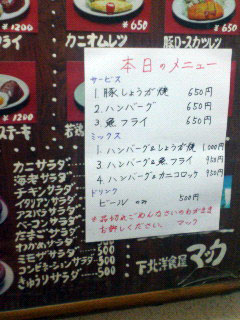 ¥650
¥650
フライ
カニオムレツ
豚ロースカツレツ
本日のメニュー
サービス
1. 豚しょうが焼 650円
2. ハンバーグ 650円
3. 魚フライ 650円
ミックス
1 ハンバーグ&しょうが焼 1,000円
3 ハンバーグ&魚フライ 950円
4 ハンバーグ&カニコロッケ 950円
ドリンク
ビール のみ 500円
※品切れごめんなさいのわがままを
お許しください。 マック
ステーキ
若鶏
カニサラダ
海老サラダ
チキンサラダ
イタリアンサラダ
アスパラサラダ
わかめサラダ
ミモザサラダ 500
コンビネーションサラダ 500
きゅうりサラダ 500
下北洋食屋 マック